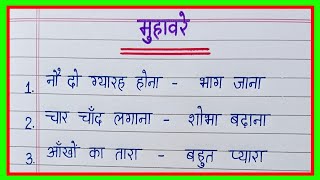 मुहावरे
1. नौ दो ग्यारह होना - भाग जाना
2. चार चाँद लगाना - शोभा बढ़ाना
3. आँखों का तारा - बहुत प्यारा